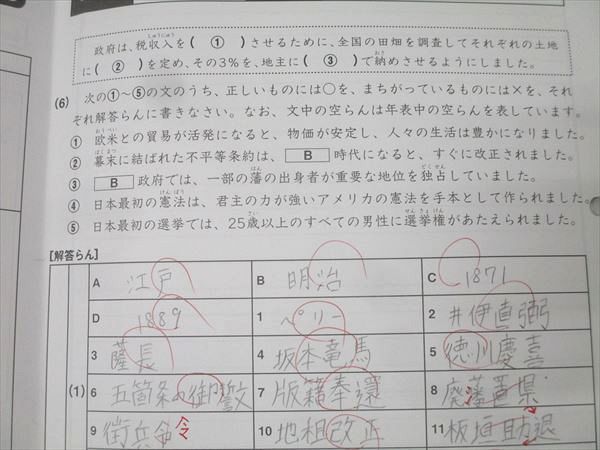 政府は、税収入を（ ① ）させるために、全国の田畑を調査してそれぞれの土地
に（ ② ）を定め、その3％を、地主に（ ③ ）で納めさせるようにしました。
(6) 次の①～⑤の文のうち、正しいものには○を、まちがっているものには×を、それ
ぞれ解答らんに書きなさい。なお、文中の空らんは年表中の空らんを表しています。
① 欧米との貿易が活発になると、物価が安定し、人々の生活は豊かになりました。
② 幕末に結ばれた不平等条約は、 B 時代になると、すぐに改正されました。
③ B 政府では、一部の藩の出身者が重要な地位を独占していました。
④ 日本最初の憲法は、君主の力が強いアメリカの憲法を手本として作られました。
⑤ 日本最初の選挙では、25歳以上のすべての男性に選挙権があたえられました。
[解答らん]
A 江戸 B 明治 C 1871
D 1889 1 ペリー 2 井伊直弼
3 薩長 4 坂本竜馬 5 徳川慶喜
(1) 6 五箇条の御誓文 7 版籍奉還 8 廃藩置県
9 徴兵令 令 10 地租改正 11 板垣助退